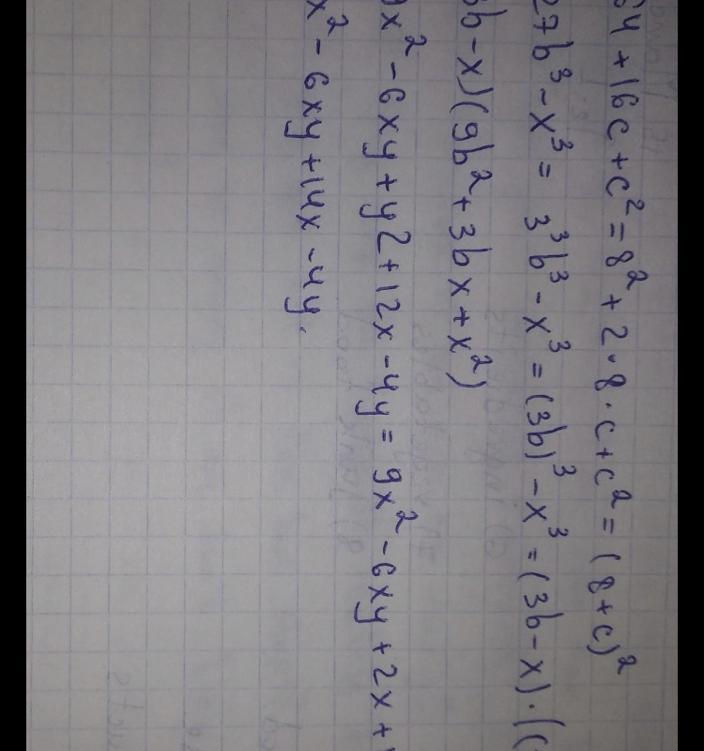 64 + 16c + c² = 8² + 2 · 8 · c + c² = (8 + c)²
27b³ - x³ = 3³b³ - x³ = (3b)³ - x³ = (3b - x) · (
3b - x)(9b² + 3bx + x²)
9x² - 6xy + y2 + 12x - 4y = 9x² - 6xy + 2x +
x² - 6xy + 14x - 4y.